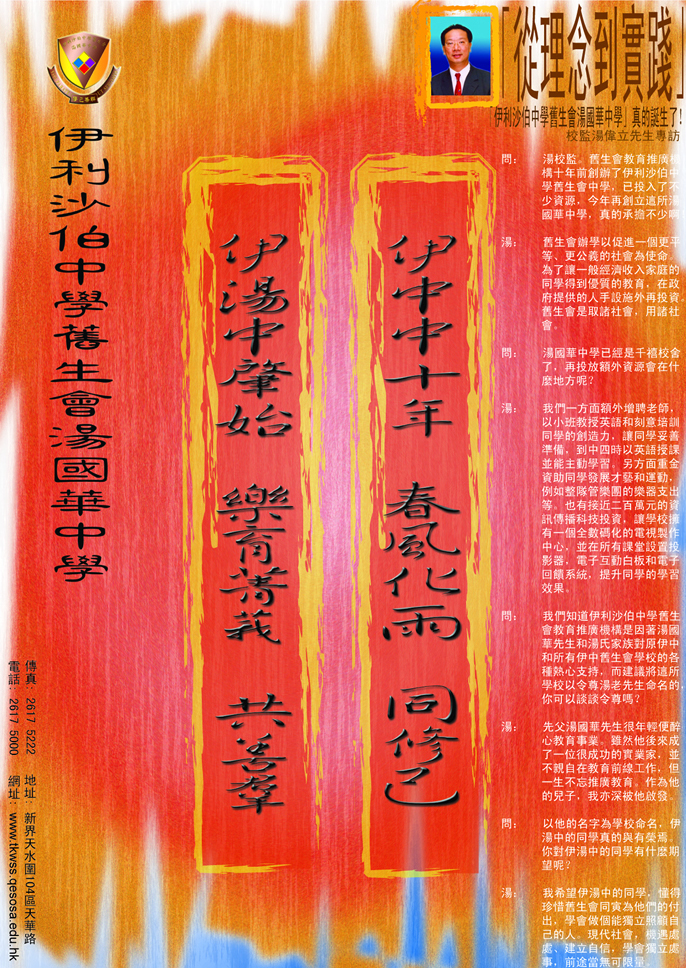 「從理念到實踐」
「伊利沙伯中學舊生會湯國華中學」真的誕生了!
校監湯偉立先生專訪
問： 湯校監。舊生會教育推廣機
構十年前創辦了伊利沙伯中
學舊生會中學，已投入了不
少資源，今年再創立這所湯
國華中學，真的承擔不少啊！
湯： 舊生會辦學以促進一個更平
等、更公義的社會為使命。
為了讓一般經濟收入家庭的
同學得到優質的教育，在政
府提供的人手設施外再投資。
舊生會是取諸社會，用諸社
會。
問： 湯國華中學已經是千禧校舍
了，再投放額外資源會在什
麼地方呢？
湯： 我們一方面額外增聘老師，
以小班教授英語和刻意培訓
同學的創造力，讓同學妥善
準備，到中四時以英語授課
並能主動學習。另方面重金
資助同學發展才藝和運動，
例如整隊管樂團的樂器支出
等。也有接近二百萬元的資
訊傳播科技投資，讓學校擁
有一個全數碼化的電視製作
中心，並在所有課堂設置投
影器，電子互動白板和電子
回饋系統，提升同學的學習
效果。
問： 我們知道伊利沙伯中學舊生
會教育推廣機構是因著湯國
華先生和湯氏家族對原伊中
和所有伊中舊生會學校的各
種熱心支持，而建議將這所
學校以令尊湯老先生命名的，
你可以談談令尊嗎？
湯： 先父湯國華先生很年輕便醉
心教育事業。雖然他後來成
了一位很成功的實業家，並
不親自在教育前線工作，但
一生不忘推廣教育。作為他
的兒子，我亦深被他啟發。
問： 以他的名字為學校命名，伊
湯中的同學真的與有榮焉。
你對伊湯中的同學有什麼期
望呢？
湯： 我希望伊湯中的同學，懂得
珍惜舊生會同寅為他們的付
出，學會做個能獨立照顧自
己的人。現代社會，機遇處
處、建立自信，學會獨立處
事，前途當無可限量。
伊中中十年 春風化雨 同修己
伊湯中肇始 樂育菁莪 共善羣
伊利沙伯中學舊生會湯國華中學
傳真：2617 5222 地址：新界天水圍104區天華路
電話：2617 5000 網址：www.tkwss.qesosa.edu.hk